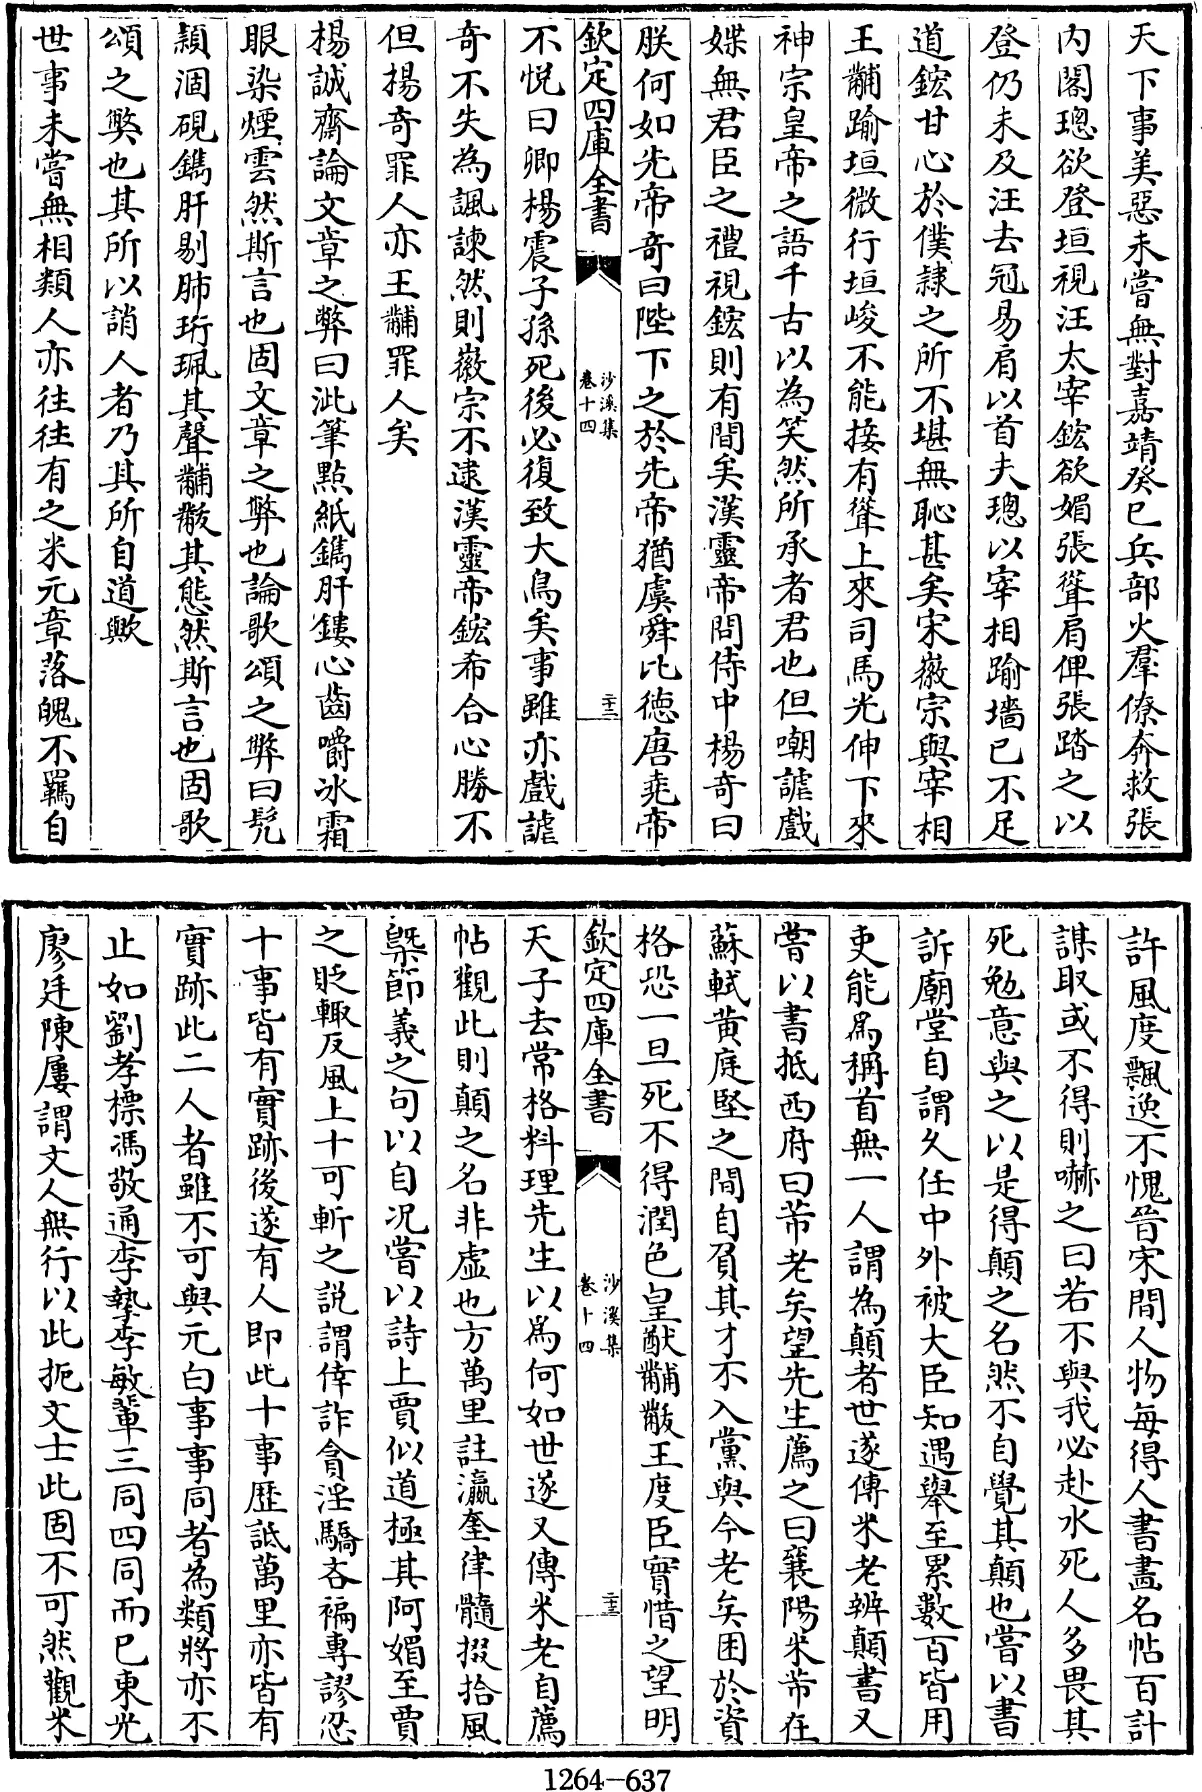 天下事美惡未嘗無對嘉靖癸巳兵部火羣僚奔救張
内閣璁欲登垣視汪太宰鋐欲媚張聳肩俾張踏之以
登仍未及汪去冠易肩以首夫璁以宰相踰墻已不足
道鋐甘心於僕隷之所不堪無恥甚矣宋徽宗與宰相
王黼踰垣微行垣峻不能接有聳上來司馬光伸下來
神宗皇帝之語千古以為笑然所承者君也但嘲謔戲
媟無君臣之禮視鋐則有間矣漢靈帝問侍中楊奇曰
朕何如先帝奇曰陛下之於先帝猶虞舜比徳唐堯帝
欽定四庫全書
沙溪集
卷十四
二十二
不悅曰卿楊震子孫死後必復致大鳥矣事雖亦戲謔
奇不失為諷諫然則徽宗不逮漢靈帝鋐希合心勝不
但楊奇罪人亦王黼罪人矣
楊誠齋論文章之弊曰泚筆㸃紙鐫肝鏤心齒嚼冰霜
眼染煙雲然斯言也固文章之弊也論歌頌之弊曰髠
頴涸硯鐫肝剔肺珩珮其聲黼黻其態然斯言也固歌
頌之弊也其所以誚人者乃其所自道歟
世事未嘗無相類人亦往往有之米元章落魄不羈自
許風度飄逸不愧晉宋間人物每得人書畫名帖百計
謀取或不得則嚇之曰若不與我必赴水死人多畏其
死勉意與之以是得顛之名然不自覺其顛也嘗以書
訴廟堂自謂久任中外被大臣知遇舉至累數百皆用
吏能為稱首無一人謂為顛者世遂傳米老辨顛書又
嘗以書抵西府曰芾老矣望先生薦之曰襄陽米芾在
蘇軾黄庭堅之間自負其才不入黨與今老矣困於資
格恐一旦死不得潤色皇猷黼黻王度臣實惜之望明
欽定四庫全書
沙溪集
卷十四
二十三
天子去常格料理先生以為何如世遂又傳米老自薦
帖觀此則顛之名非虛也方萬里註瀛奎律髓掇拾風
槩節義之句以自况嘗以詩上賈似道極其阿媚至賈
之貶輙反風上十可斬之説謂倖詐貪淫驕吝褊專謬忍
十事皆有實跡後遂有人即此十事歷詆萬里亦皆有
實跡此二人者雖不可與元白事事同者為類將亦不
止如劉孝標馮敬通李摯李敏輩三同四同而已東光
廖廷陳屢謂文人無行以此扼文士此固不可然觀米
1264—637